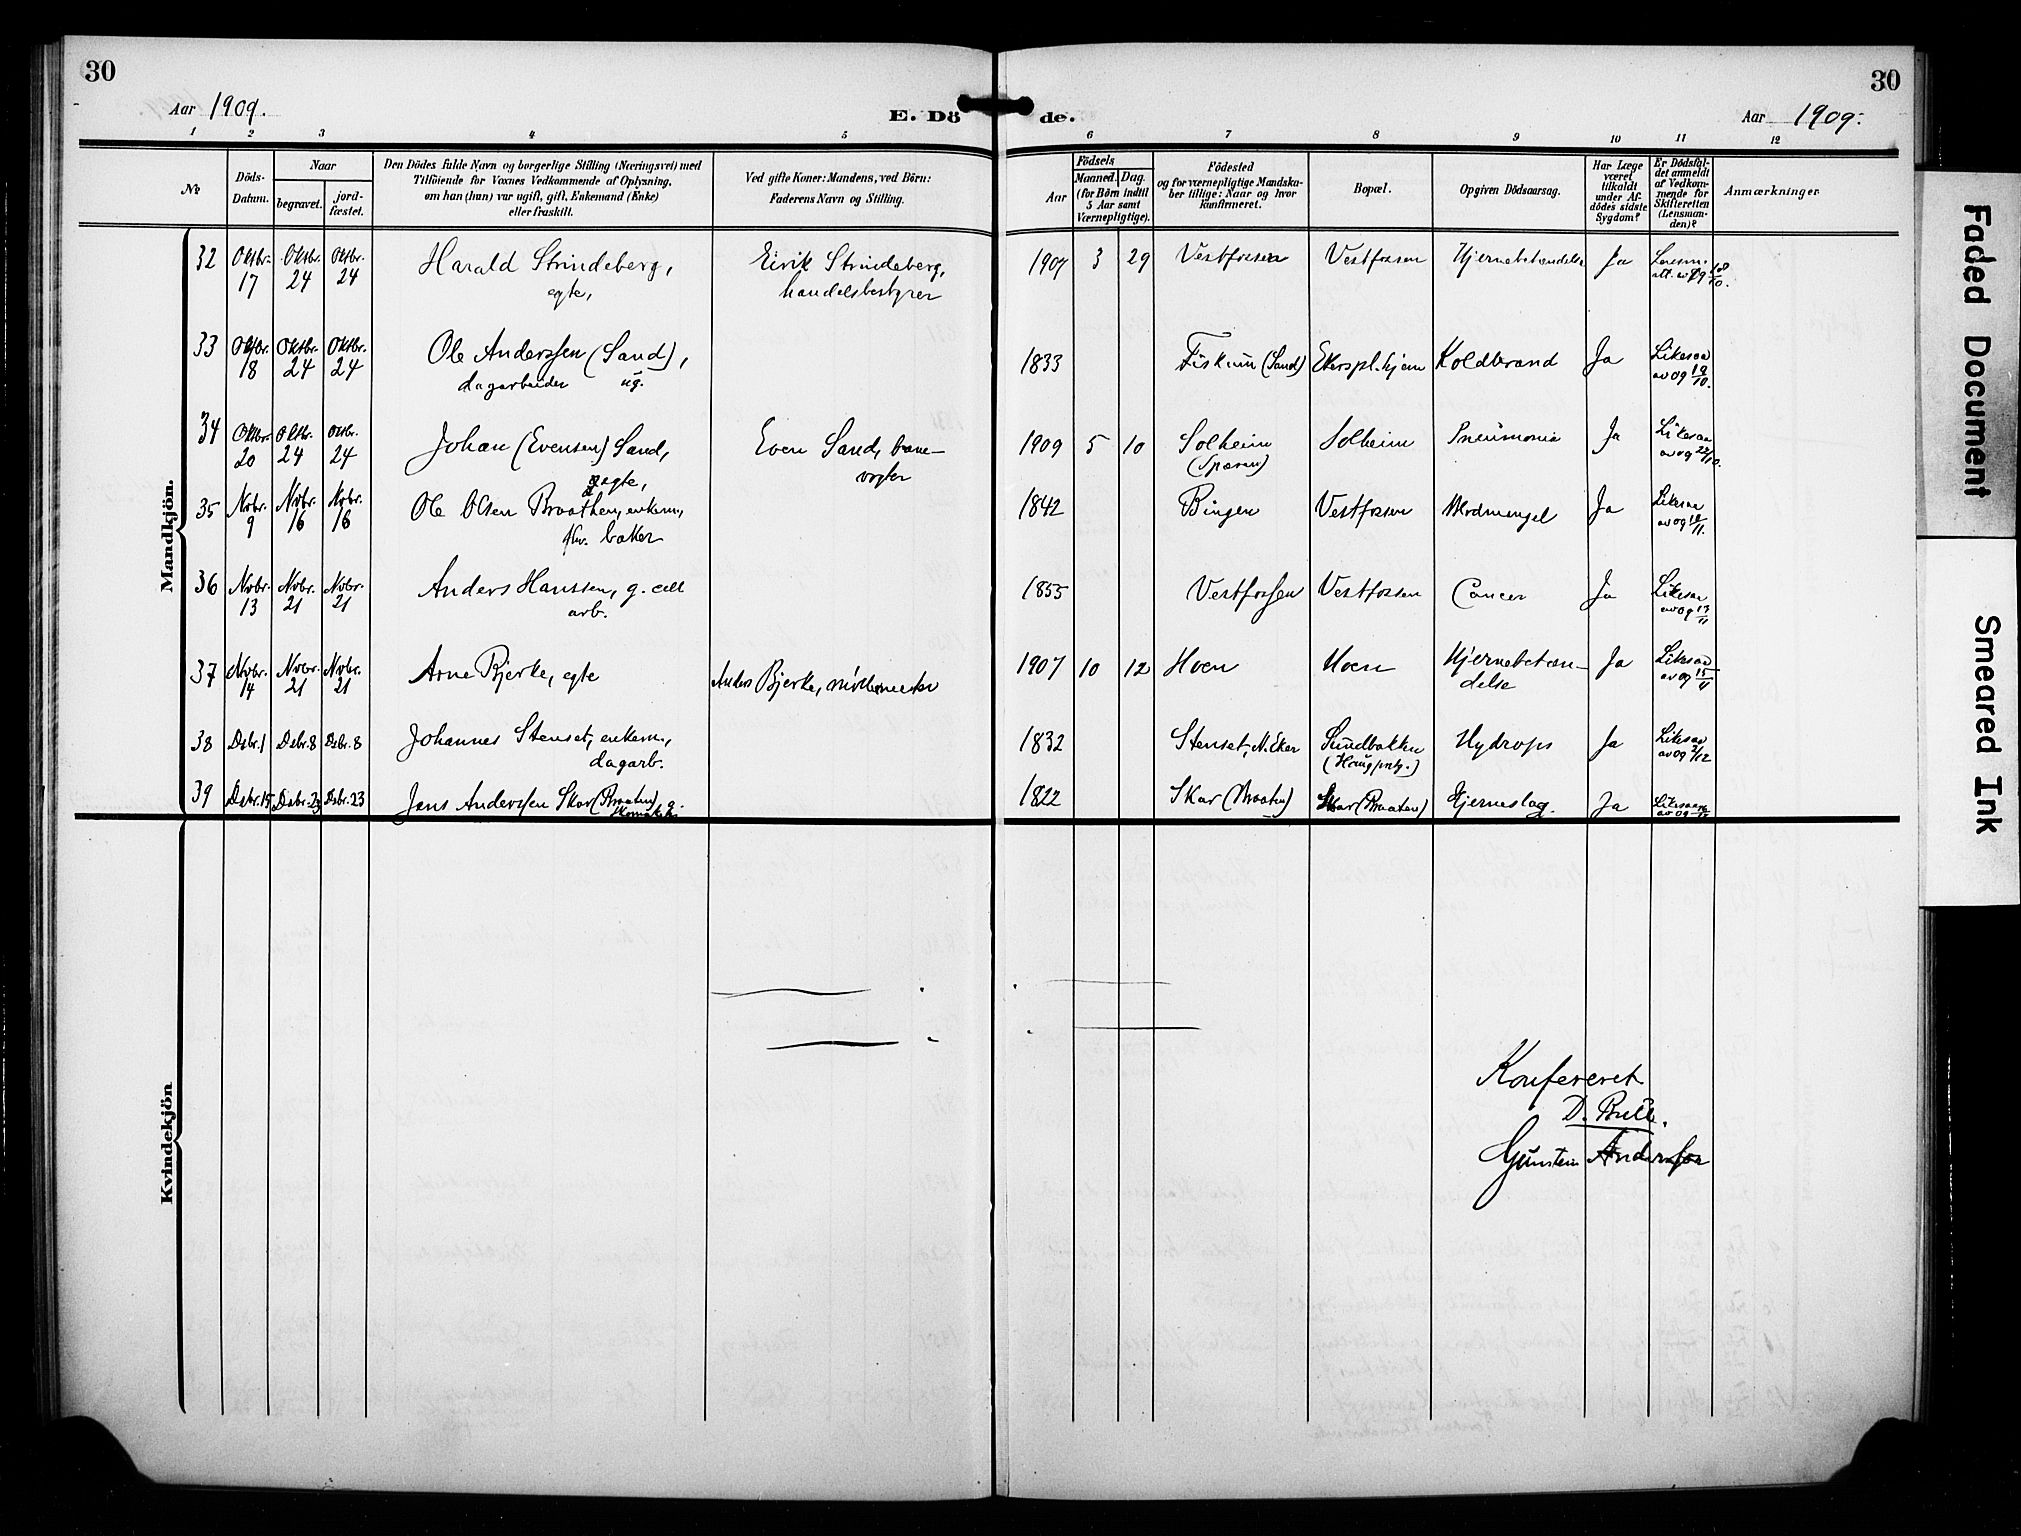 30
30
Aar 1909.
E. Dö
de.
Aar 1909.
1 2 3 4 5 6 7 8 9 10 11 12
No
Döds-Datum.
Naar
begravet.
jord-fæstet.
Den Dödes fulde Navn og borgerlige Stilling (Næringsvei) med
Tilföiende for Voxnes Vedkommende af Oplysning,
om han (hun) var ugift, gift, Enkemand (Enke)
eller fraskilt.
Ved gifte Koner: Mandens, ved Börn:
Faderens Navn og Stilling.
Födsels
Aar
Maaned.
Dag.
(for Börn indtil
5 Aar samt
Værnepligtige).
Födested
og for værnepligtige Mandska-
ber tillige: Naar og hvor
konfirmeret.
Bopæl.
Opgiven Dödsaarsag.
Har Læge
været
tilkaldt
under Af-
dödes sidste
Sygdom?
Er Dödsfal-
det anmeldt
af Vedkom-
mende for
Skifteretten
(Lensman-
den)?
Anmærkninger
Mandkjön.
32 Oktbr. 17 Oktbr. 24 Oktbr. 24 Harald Strindeberg, Eirik Strindeberg, 1907 3 29 Vestfossen Vestfossen Hjernebetændelse Ja Lensm.
egte, handelsbestyrer
33 Oktbr. 18 Oktbr. 24 Oktbr. 24 Ole Anderssen (Sand), 1833 Fiskum (Sand) Ekerspl.hjem Koldbrand Ja Likesaa av 09 19/10.
dagarbeider ug.
34 Oktbr. 20 Oktbr. 24 Oktbr. 24 Johan (Evensen) Sand, Even Sand, bane- 1909 5 10 Solheim Solheim Pneumonia Ja Likesaa av 09 22/10.
egte, vogter (Sparen)
35 Nvbr. 9 Nvbr. 16 Nvbr. 16 Ole Olsen Braathen, enkem., 1842 Bingen Vestfossen Blodmangel Ja Likesaa av 09 10/11.
fhv. baker
36 Nvbr. 13 Nvbr. 21 Nvbr. 21 Anders Hanssen, g. cell 1855 Vestfossen Vestfossen Cancer Ja Likesaa av 09 13/11
arb.
37 Nvbr. 14 Nvbr. 21 Nvbr. 21 Arne Bjerke, egte Anders Bjerke, møllemester 1907 10 12 Hoen Hoen Hjernebetæn- Ja Likesaa av 09 15/11
delse
38 Dsbr. 1 Dsbr. 8 Dsbr. 8 Johannes Stenset, enkem., 1832 Stenset, N. Eker Sundbakken Hydrops Ja Likesaa av 09 2/12
dagarb. (Haug prstg.)
39 Dsbr. 15 Dsbr. 23 Dsbr. 23 Jens Anderssen Skar (Braaten) g. 1822 Skar (Braaten) Skar (Braaten) Hjerneslag. Ja Likesaa av 09
Kvindekjön
Konfereret
D. Bull.
Gunstein Anderssen
Faded Document
Smeared Ink